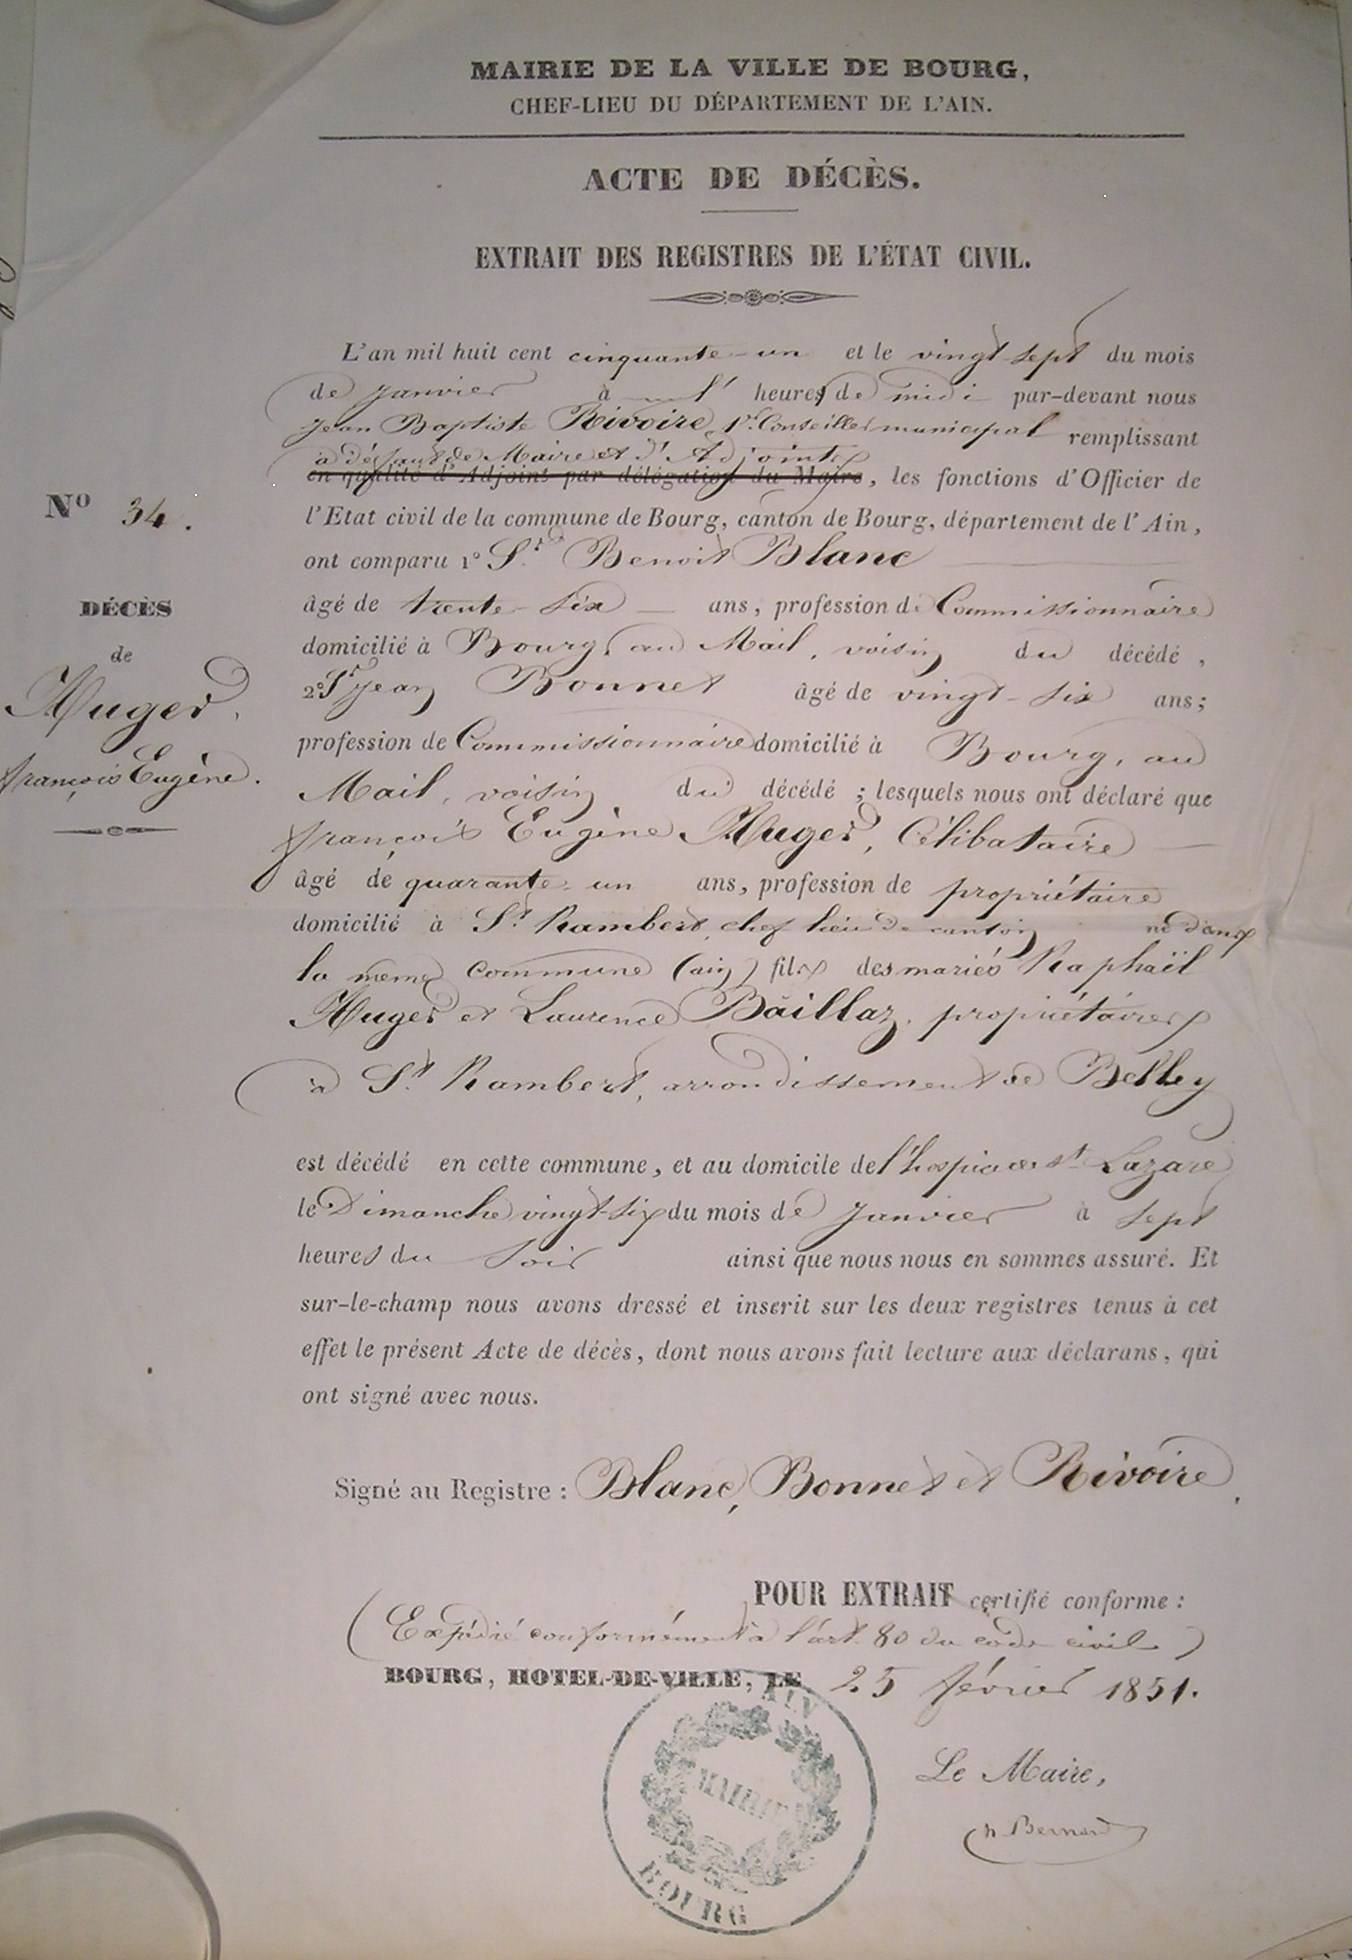 MAIRIE DE LA VILLE DE BOURG,
CHEF-LIEU DU DÉPARTEMENT DE L'AIN.
ACTE DE DÉCÈS.
EXTRAIT DES REGISTRES DE L'ÉTAT CIVIL.
L'an mil huit cent cinquante-un et le vingt-sept du mois
de janvier à l' heures de midi par-devant nous
Jean Baptiste Rivoire, 1er Conseiller municipal remplissant
à défaut de Maire et d'Adjoints
en qualité d'Adjoint par délégation du Maire, les fonctions d'Officier de
l'Etat civil de la commune de Bourg, canton de Bourg, département de l'Ain,
ont comparu 1° Sr. Benoit Blanc
âgé de trente-six ans, profession de Commissionnaire
domicilié à Bourg, au Mail, voisin du décédé,
2° Sr Jean Bonnet âgé de vingt-six ans;
profession de Commissionnaire domicilié à Bourg, au
Mail, voisin du décédé; lesquels nous ont déclaré que
françois Eugène Auger, Célibataire
âgé de quarante-un ans, profession de propriétaire
domicilié à St. Rambert, chef lieu de canton né dans
la même commune (ain) fils des mariés Raphaël
Auger et Laurence Baillaz, propriétaires
à St. Rambert, arrondissement de Belley
est décédé en cette commune, et au domicile de l'hospice de St Lazare
le Dimanche vingt-six du mois de janvier à sept
heures du soir ainsi que nous nous en sommes assuré. Et
sur-le-champ nous avons dressé et inscrit sur les deux registres tenus à cet
effet le présent Acte de décès, dont nous avons fait lecture aux déclarans, qui
ont signé avec nous.
Signé au Registre : Blanc, Bonnet et Rivoire.
POUR EXTRAIT certifié conforme :
(Expédié conformément à l'art. 80 du code civil)
BOURG, HOTEL-DE-VILLE, LE 25 février 1851.
Le Maire,
Bernard
N° 34.
DÉCÈS
de
Auger,
françois Eugène.
AIN
MAIRIE
BOURG